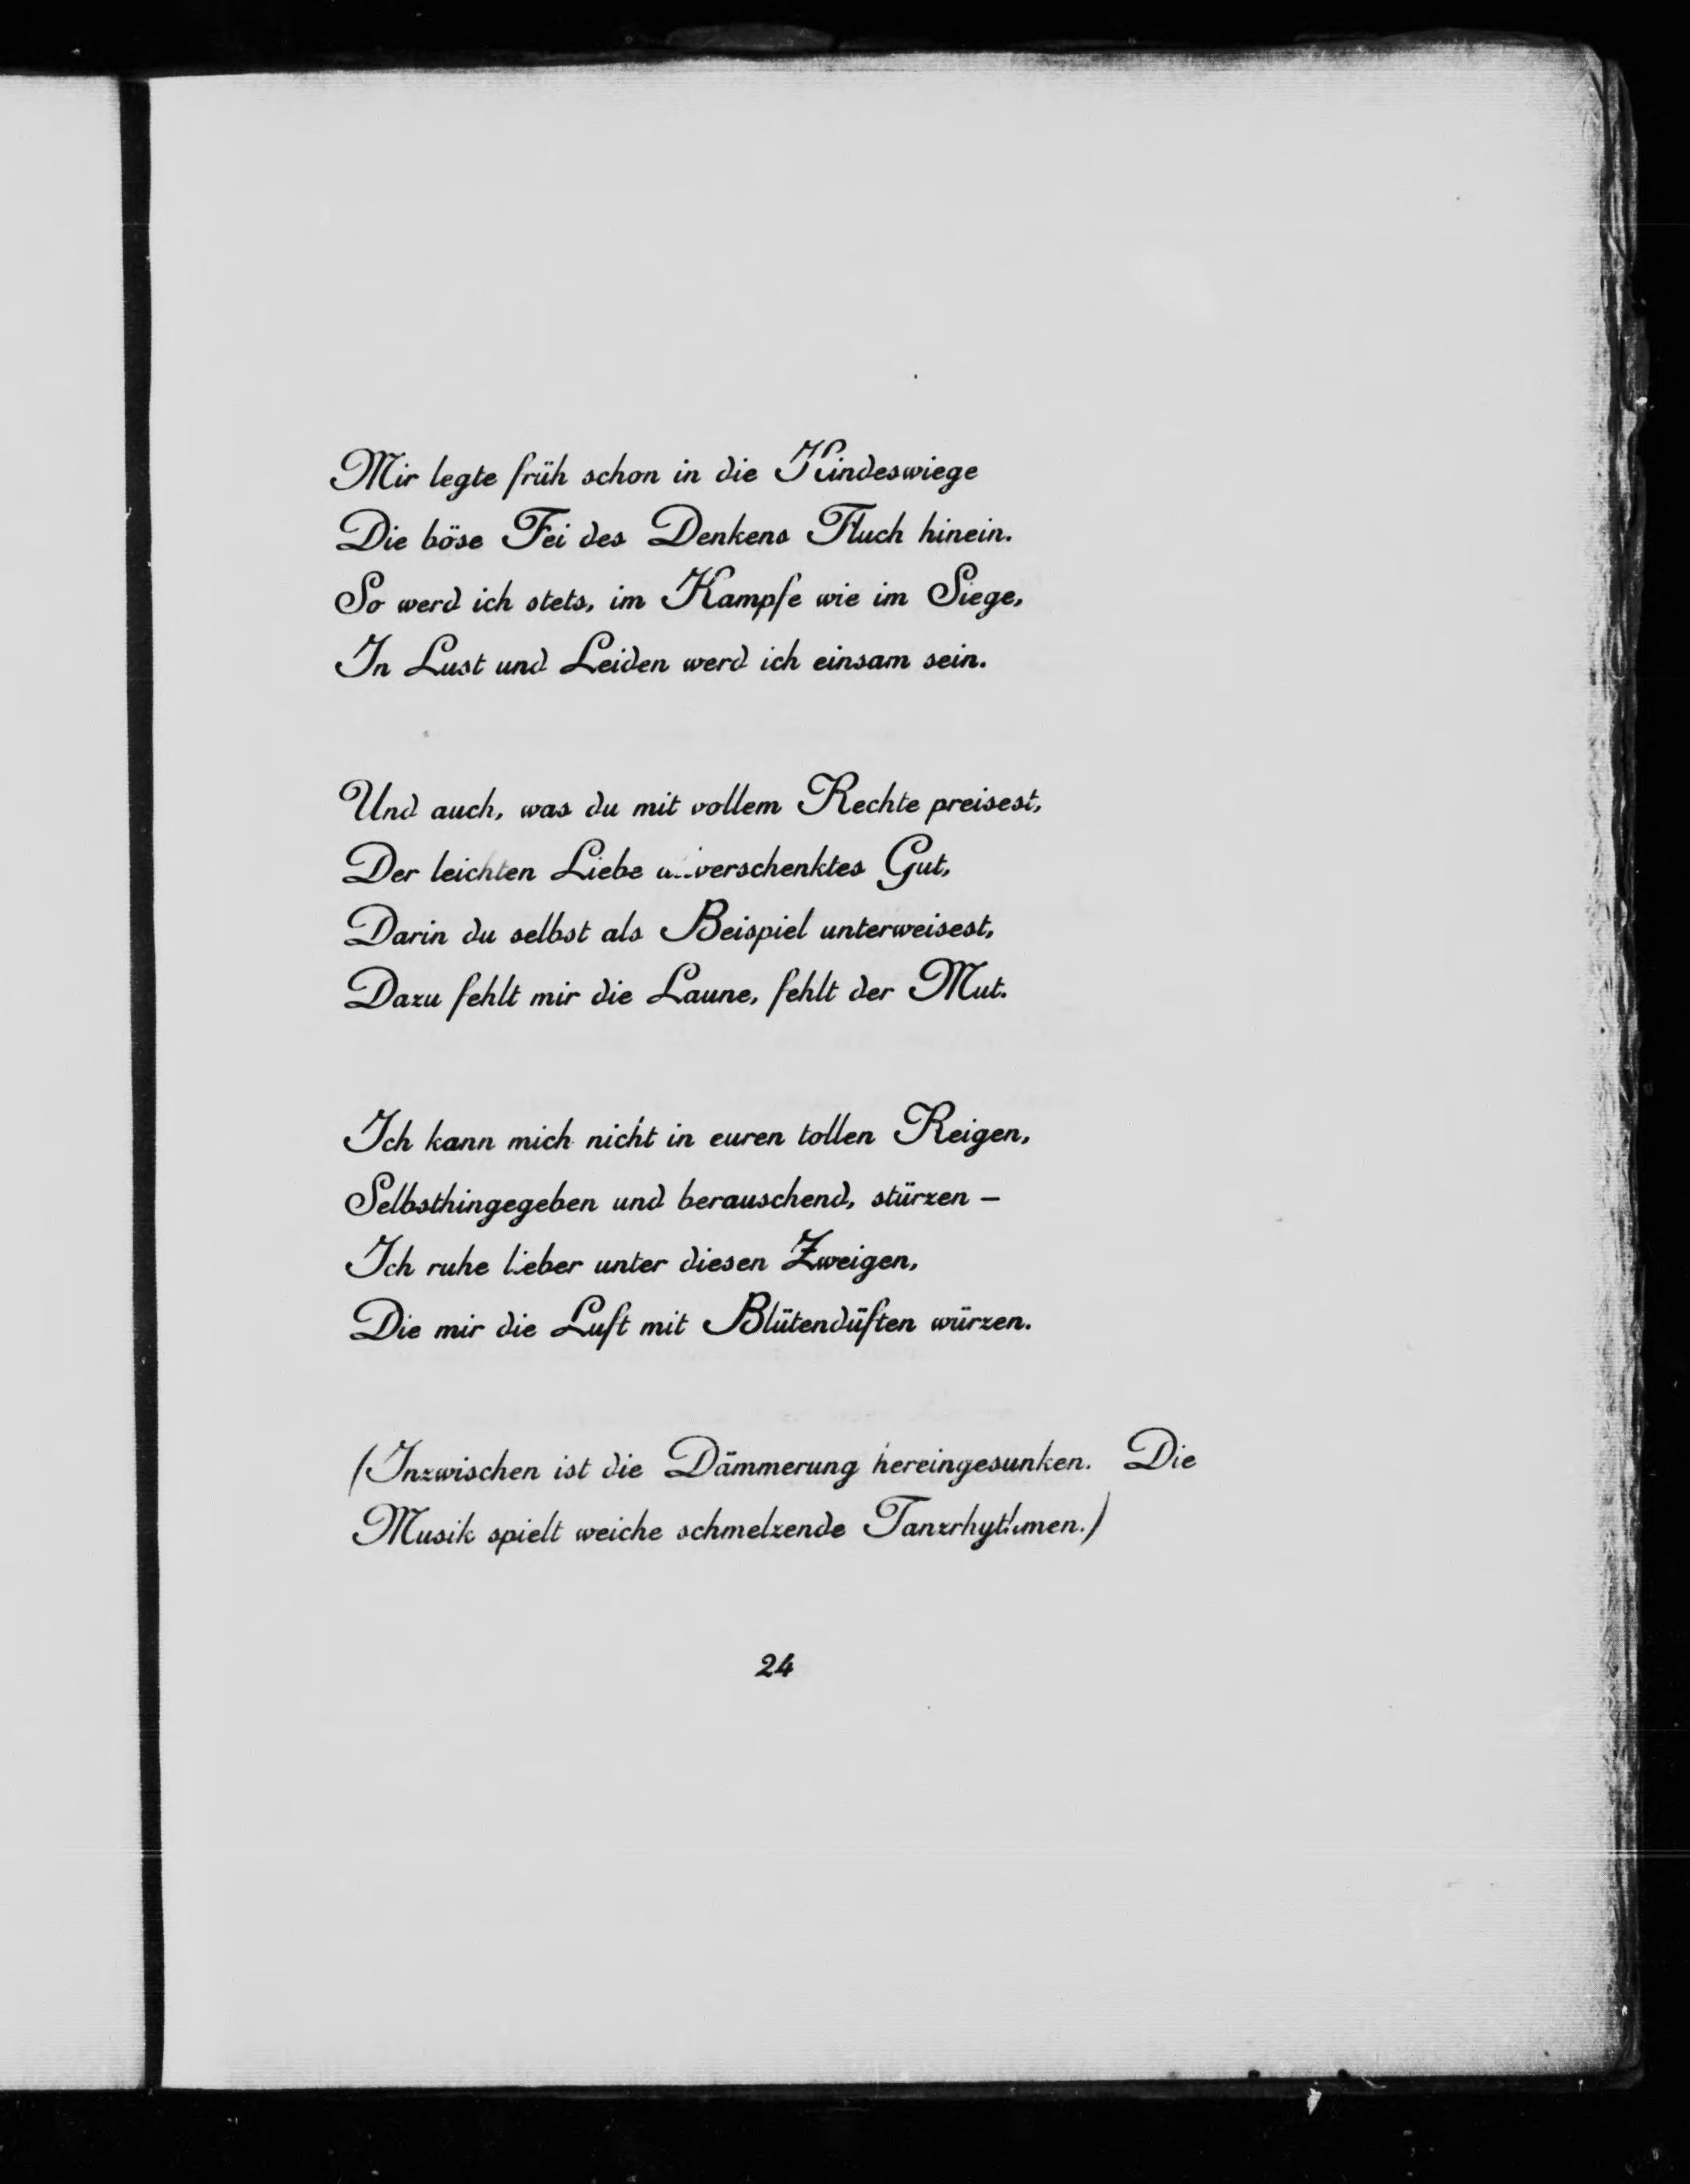 Mir legte früh schon in die Kindeswiege
Die böse Fei des Denkens Fluch hinein.
So werd ich stets, im Kampfe wie im Siege,
In Lust und Leiden werd ich einsam sein.
Und auch, was du mit vollem Rechte preisest,
Der leichten Liebe Gut,
Darin du selbst als Beispiel unterweisest,
Dazu fehlt mir die Laune, fehlt der Mut.
Ich kann mich nicht in euren tollen Reigen,
Selbsthingegeben und berauschend, stürzen –
Ich ruhe lieber unter diesen Zweigen,
Die mir die Luft mit Blütendüften würzen.
(Inzwischen ist die Dämmerung hereingesunken. Die
Musik spielt weiche schmelzende Tanzrhythmen.)
24